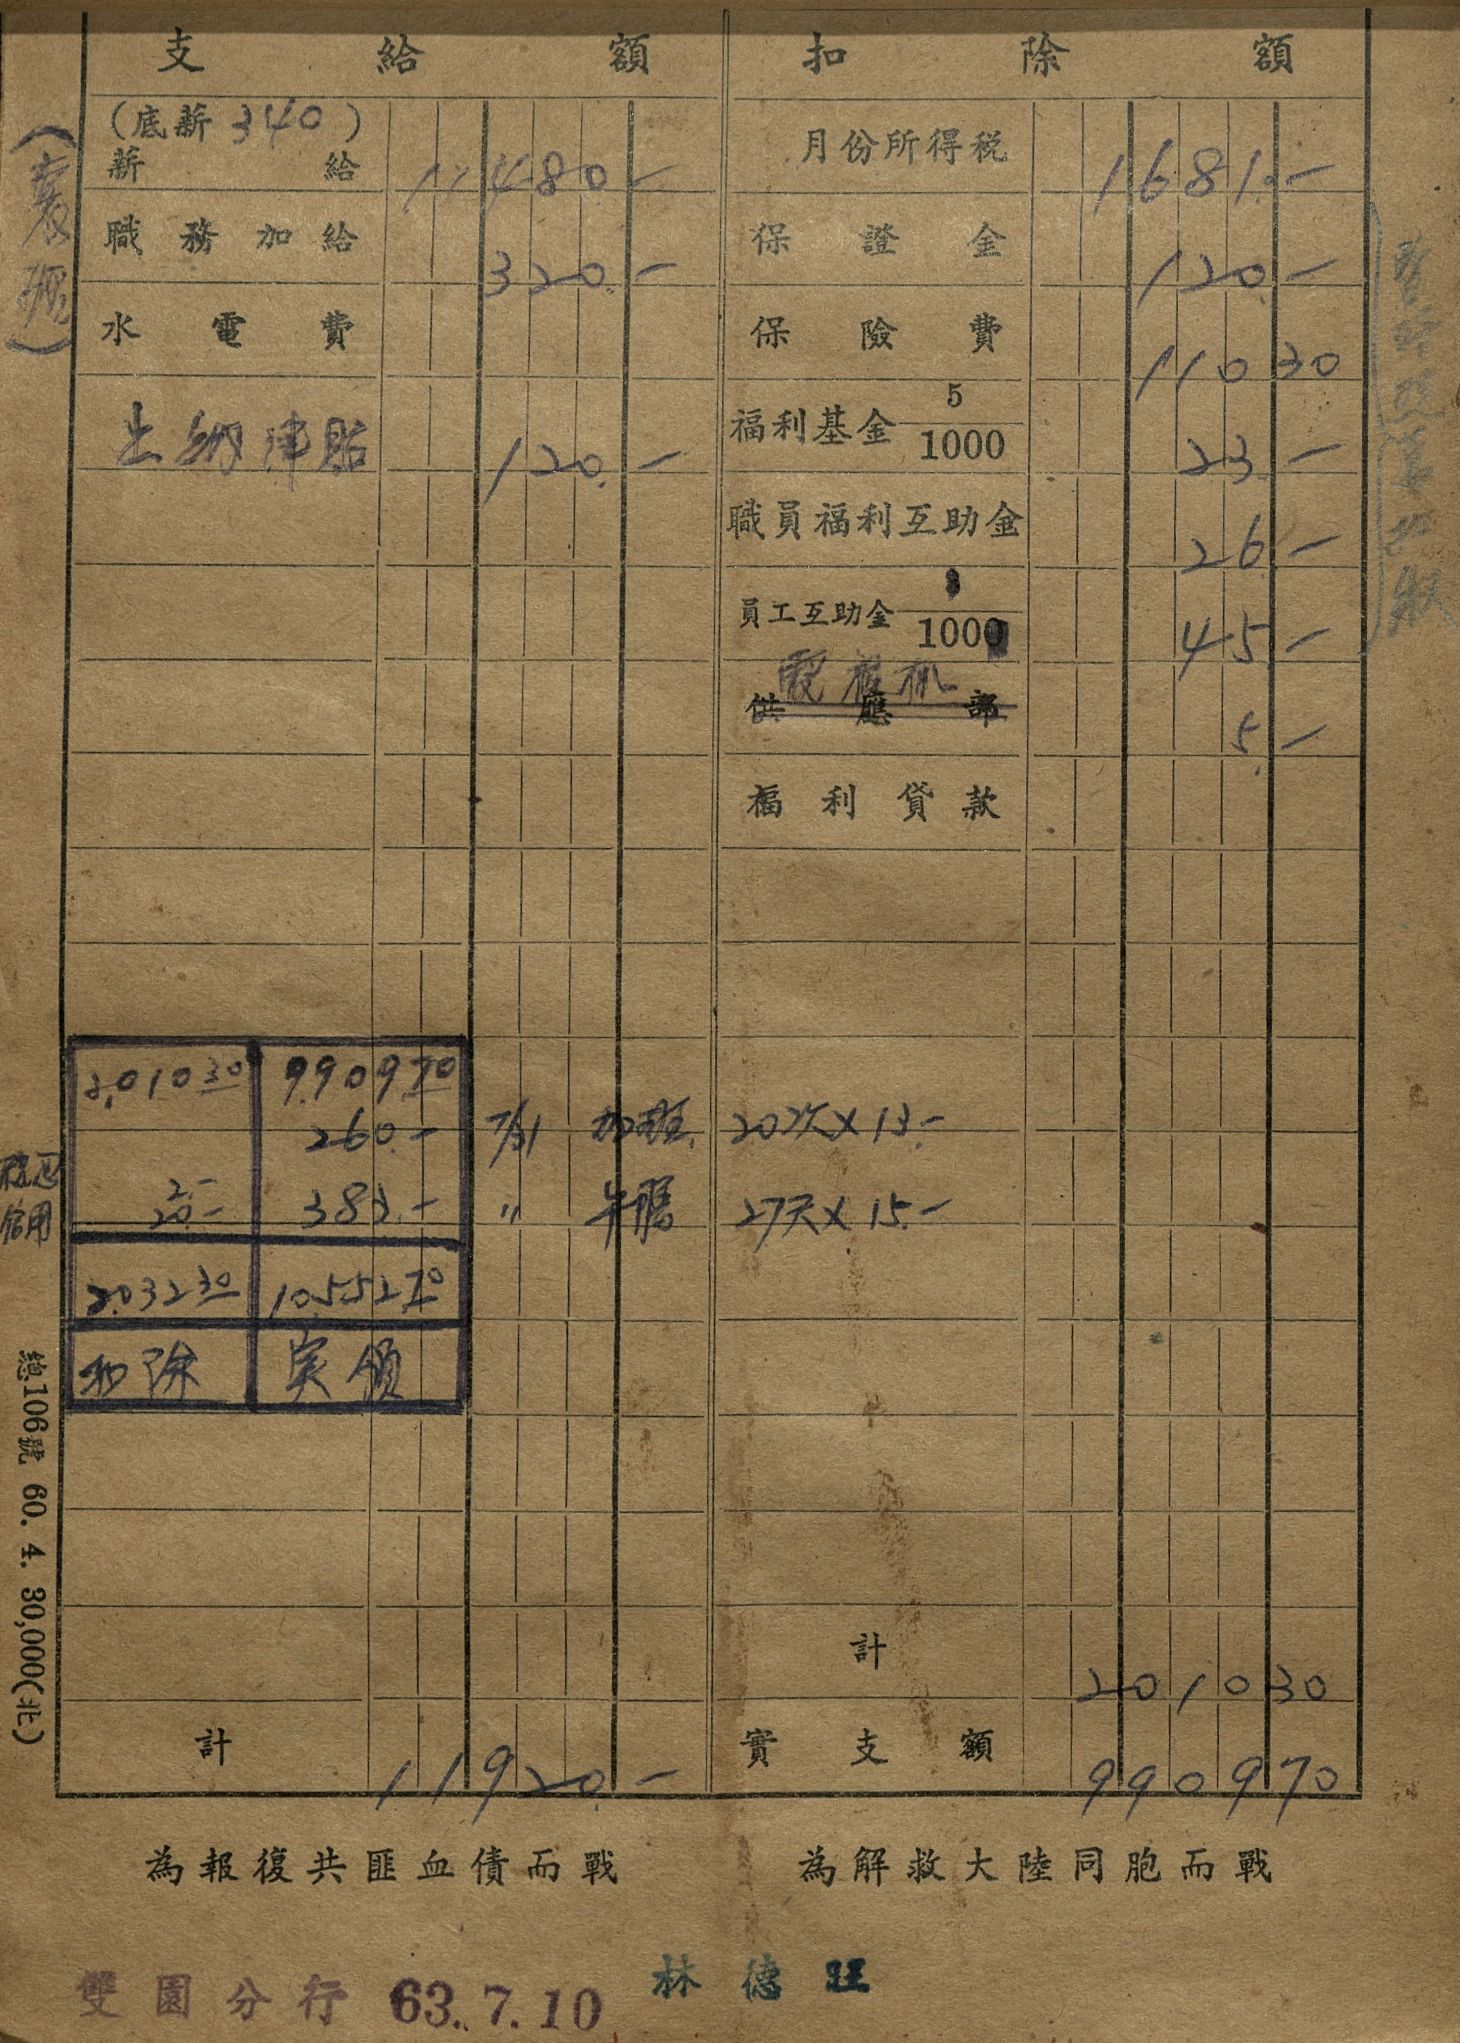 支給額 扣除額
(底薪 340)
薪給 11480.-
職務加給 320.-
水電費
出納津貼 120.-
月份所得稅 1681.-
保證金 120.-
保險費 110 30
福利基金 5/1000 23.-
職員福利互助金 26.-
員工互助金 1000 45.-
供應部 5.-
福利貸款
2,010 30 9,909 70
260.- 7/31 加班 20次×13.-
2.-
20.- 383.- 〃 午膳 27天×15.-
信用
2,032 30 10,552 70
扣除 実領
計 2010 30
計 11920.-
實支額 9909 70
為報復共匪血債而戰 為解救大陸同胞而戰
雙園分行 63.7.10 林德旺
總106號 60. 4. 30,000(北)